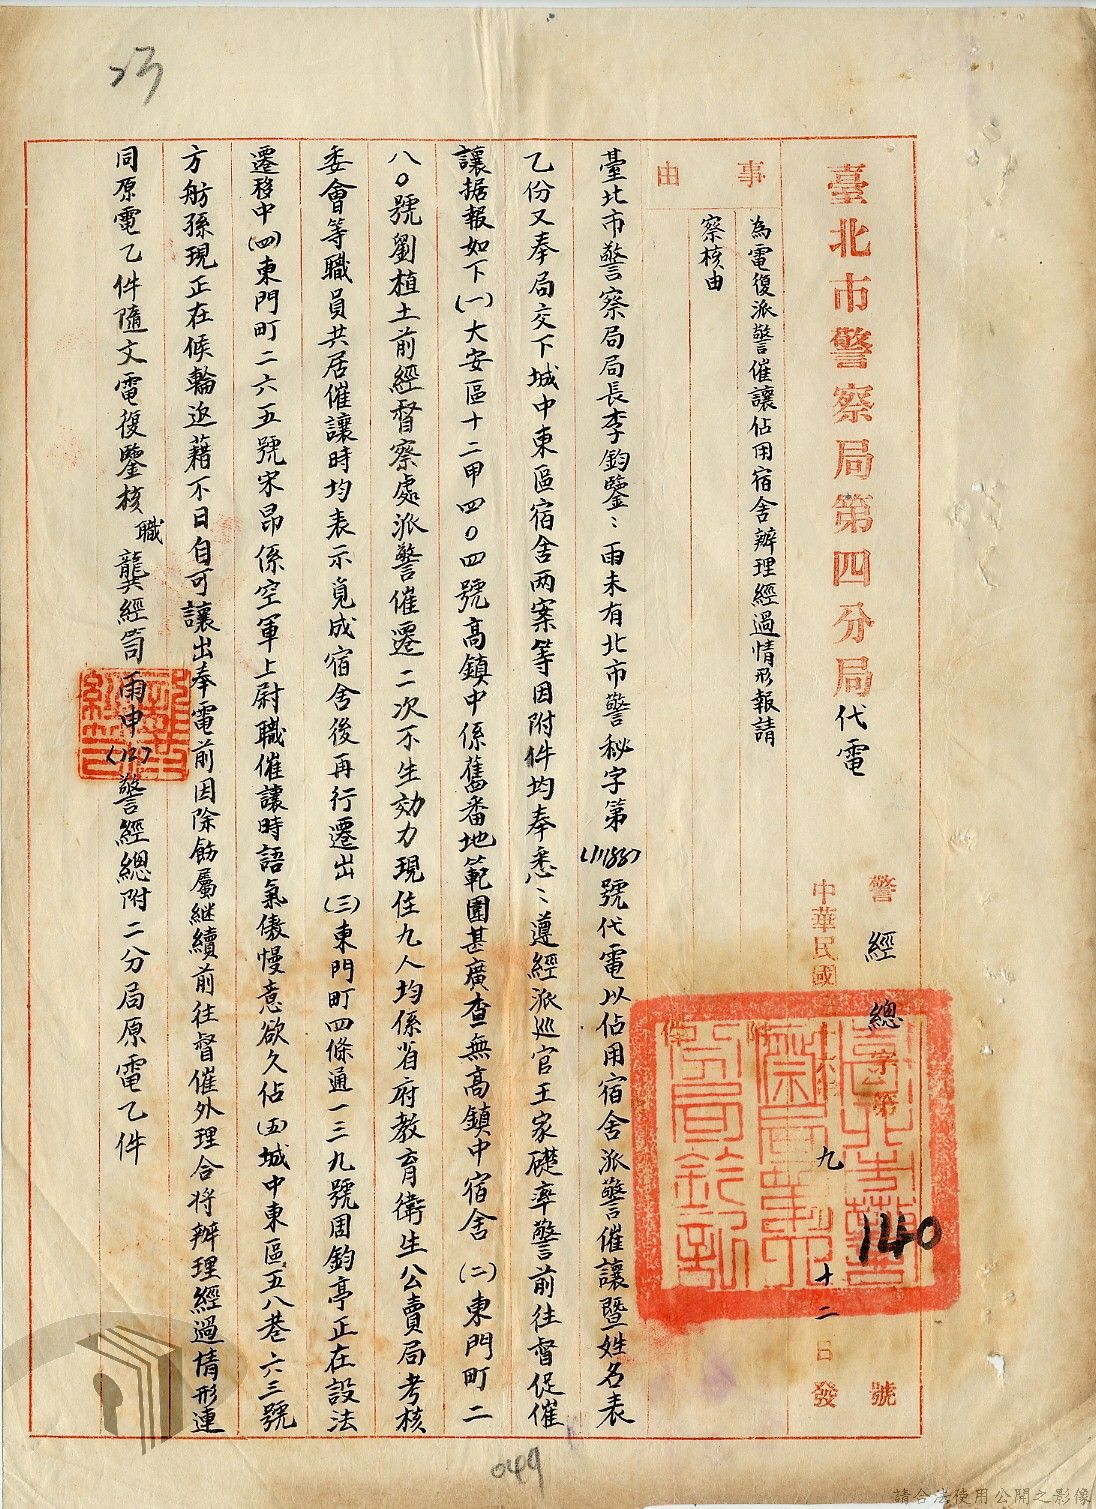 臺北市警察局第四分局代電
警經總字第140號
中華民國
九
十二日發
事由
為電復派警催讓佔用宿舍辦理經過情形報請
察核由
臺北市警察局局長李鈞鑒：雨未有北市警秘字第(11188)號代電以佔用宿舍派警催讓暨姓名表
乙份又奉局交下城中東區宿舍兩案等因附件均奉悉：遵經派巡官王家礎率警前往督促催
讓据報如下(一)大安區十二甲四〇四號高鎮中係舊番地範圍甚廣查無高鎮中宿舍(二)東門町二
八〇號劉植土前經督察處派警催遷二次不生効力現住九人均係省府教育衛生公賣局考核
委會等職員共居催讓時均表示覓成宿舍後再行遷出(三)東門町四條通一三九號周鈞亭正在設法
遷移中(四)東門町二六五號宋昂係空軍上尉職催讓時語氣傲慢意欲久佔(五)城中東區五八巷六三號
方舫孫現正在候輪返藉不日自可讓出奉電前因除飭屬継續前往督催外理合將辦理經過情形連
同原電乙件隨文電復鑒核職龔經笥雨申(12)警經總附二分局原電乙件
049
請合法使用公開之影像